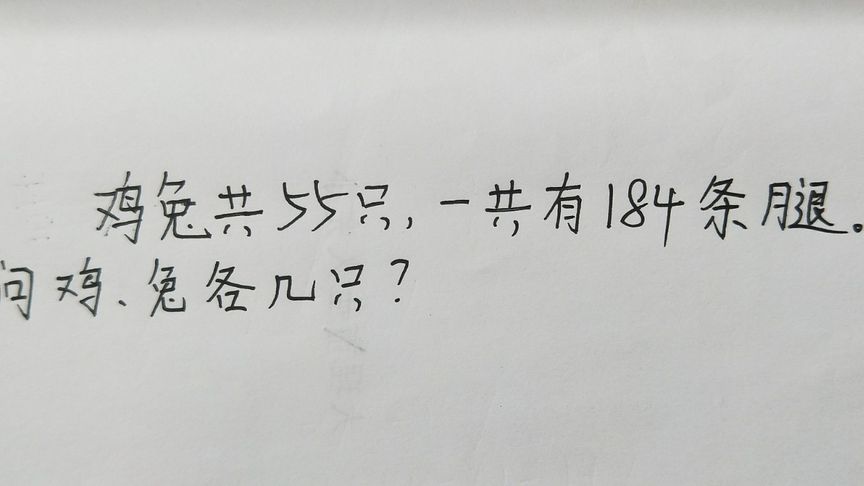 鸡兔共55只,一共有184条腿。
问鸡、兔各几只?